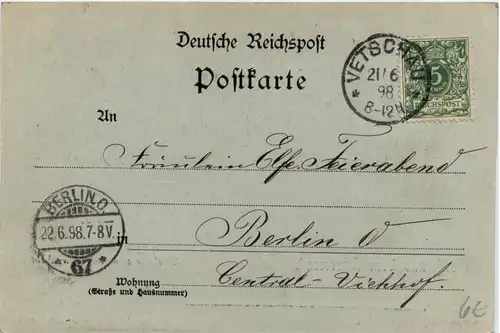 Deutsche Reichspost
Postkarte
VETSCHAU
21/6
98
8-12V
5
REICHSPOST
An
Fräulein Else Feierabend
BERLIN.O.
22.6.98.7-8V.
67
in
Berlin O
Central-Viehhof.
Wohnung
(Straße und Hausnummer)
6€